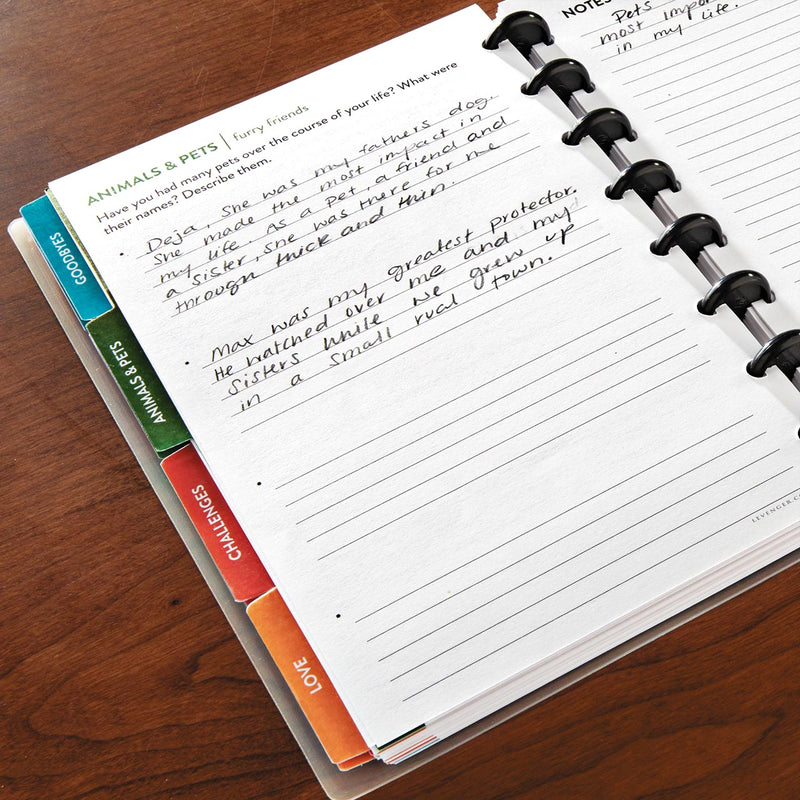 ANIMALS & PETS | furry friends
Have you had many pets over the course of your life? What were
their names? Describe them.
• Deja, She was my fathers dog.
She made the most impact in
my life. As a pet, a friend and
a sister, she was there for me
through thick and thin.
• Max was my greatest protector.
He watched over me and my
Sisters while we grew up
in a small rual town.
•
•
LEVENGER.C
NOTES
Pets
most impor
in my life.
GOODBYES
ANIMALS & PETS
CHALLENGES
LOVE